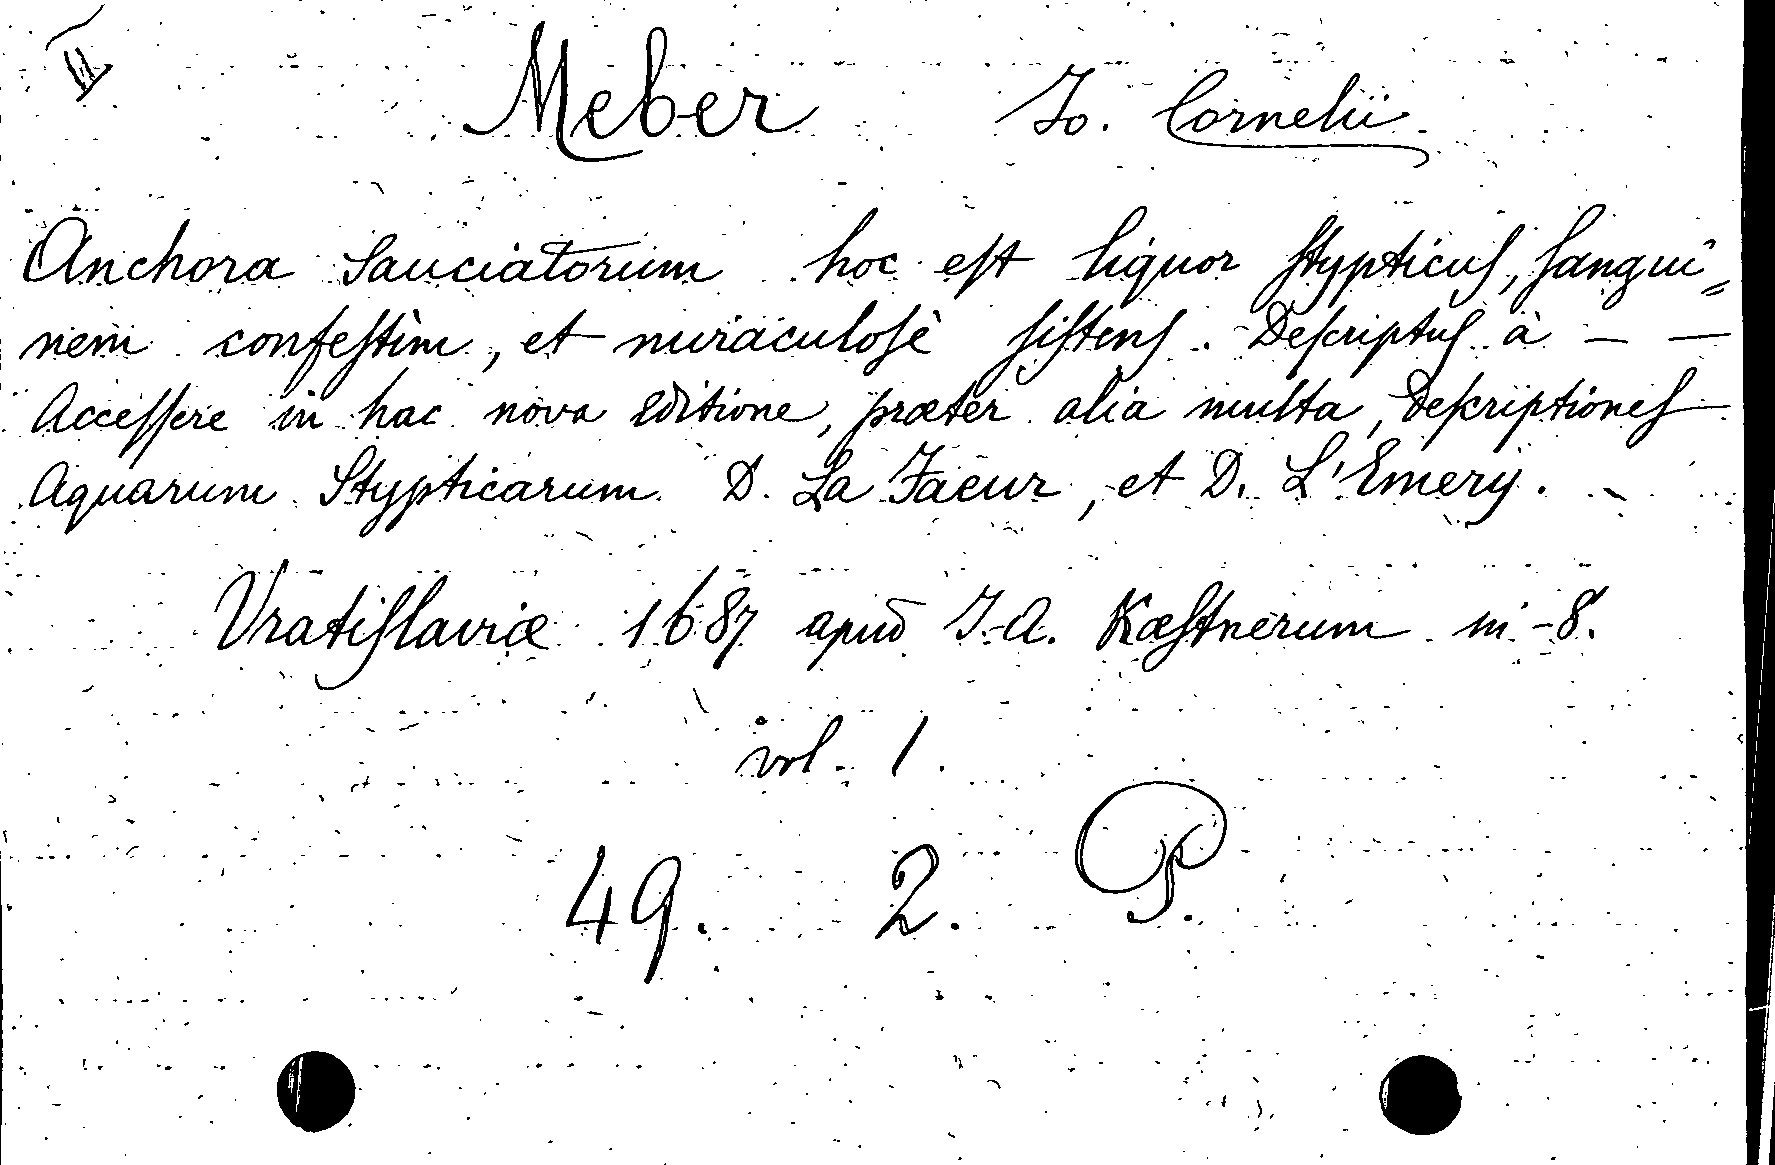 Meber Jo. Cornelii
Anchora Sauciatorum hoc eſt liquor ſtypticuſ, ſangui=
nem confeſtìm, et miraculoſè ſiſtenſ. Deſcriptuſ à — —
Acceſſere in hac nova editione, præter alia multa, Deſcriptioneſ
Aquarum Stypticarum D. La Faeur, et D. L'Emery.
Vratiſlaviæ 1687 apud J. A. Kæſtnerum in-8.
vol. 1.
49. 2. P.